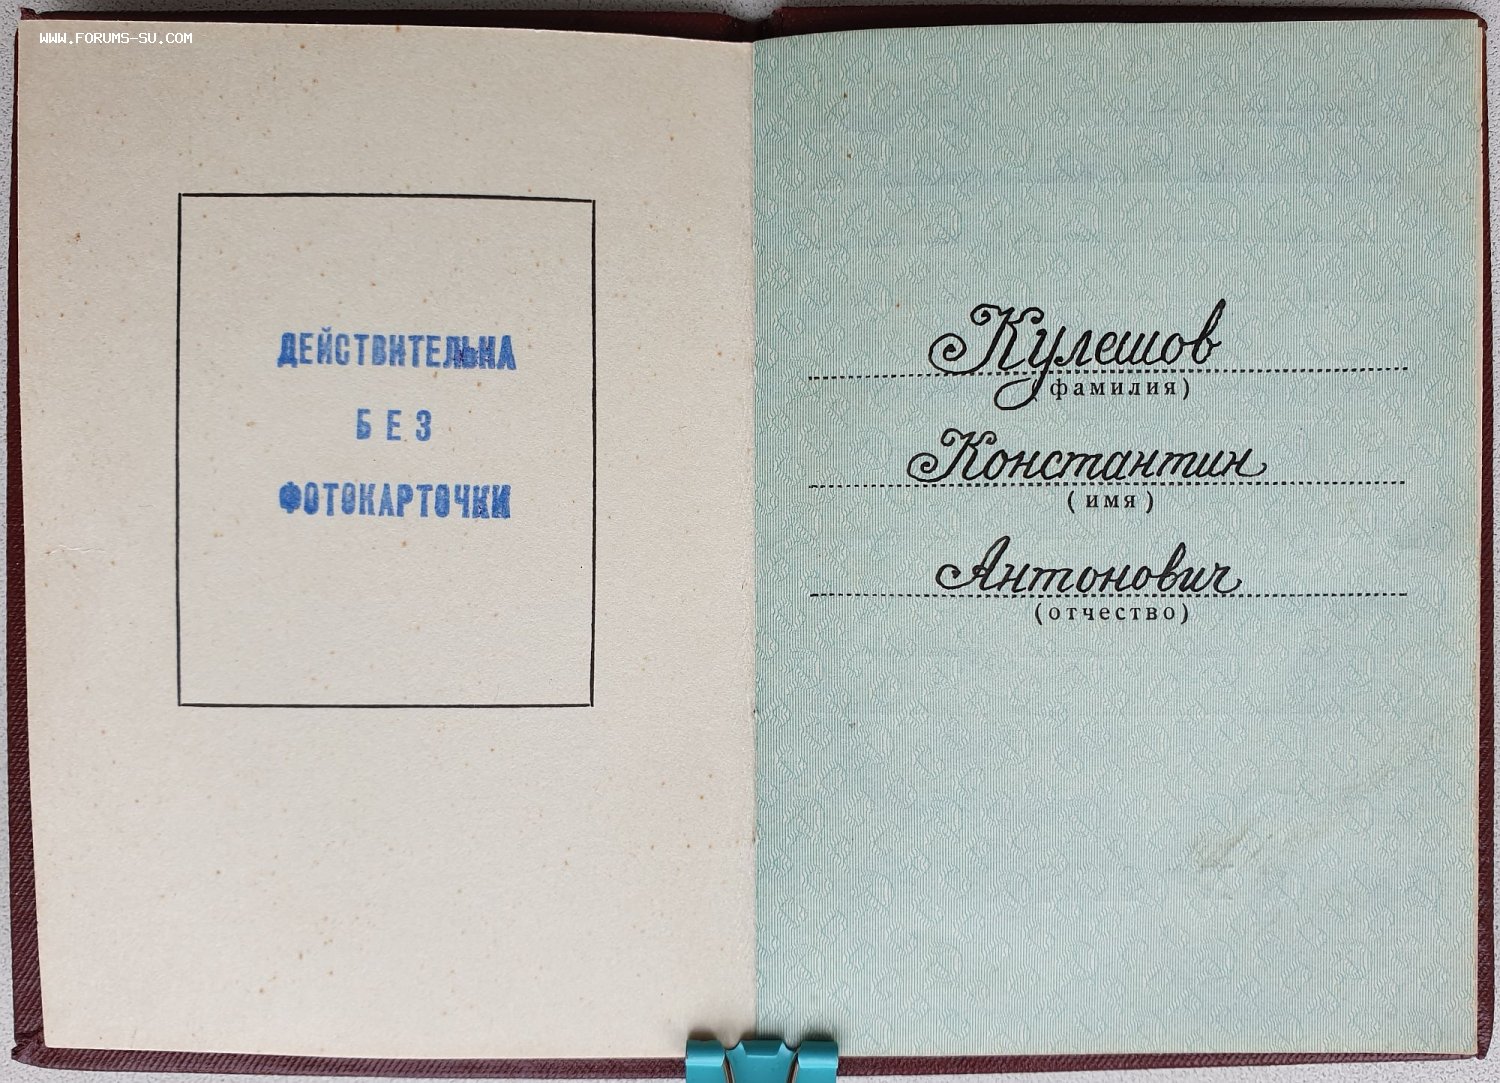 WWW.FORUMS-SU.COM
ДЕЙСТВИТЕЛЬНА
БЕЗ
ФОТОКАРТОЧКИ
Кулешов
(фамилия)
Константин
(имя)
Антонович
(отчество)